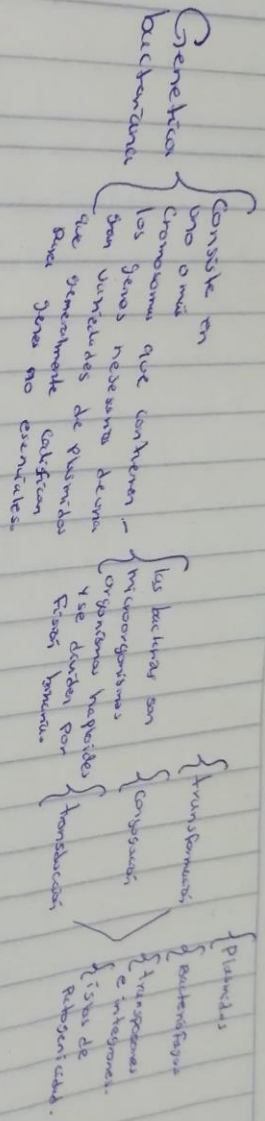 Genetica
bacteriana
Consiste en
uno o más
cromosomas que contienen
los genes necesarios de una
gran variedades de plasmidos
que generalmente codifican
para genes no esenciales.
las bacterias son
microorganismos
organismos haploides
y se dividen por
Fisión binaria.
transformación
conjugación
transducción
Plasmidos
Bacteriofagos
transposones
e integrones.
islas de
Patogenicidad.